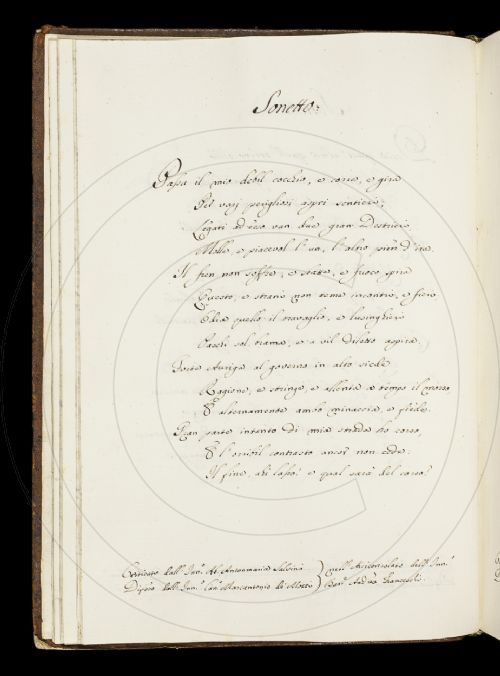 Sonetto.
Passa il mio debil cocchio, e corre, e gira
Per varj perigliosi aspri sentieri;
Legati ad esso van due gran Destrieri
Molle, e piacevol l'un, l'altro pien d'ira.
Il fren non soffre, e stasse, e fuoco spira
Questo, e strazio non teme incontro, e fiero
Odia quello il travaglio, e lusinghiero
Occhi sol brama, e a vil Diletto aspira.
Forte Auriga al governo in alto siede
Ragione, e stringe, e allenta a tempo il morso
E alternamente ambo minaccia, e fiede.
Gran parte intanto di mia strada ho corso,
E l'orribil contrasto ancor non cede:
Il fine, ahi lasso! e qual sarà del corso?
Criticato dall' Inn.º Ab. Antonmaria Salvini
Difeso dall' Inn.º Can. Marcantonio de' Mozzi
nell' Arciconsolato dell' Inn.º
Andrea Franceschi.